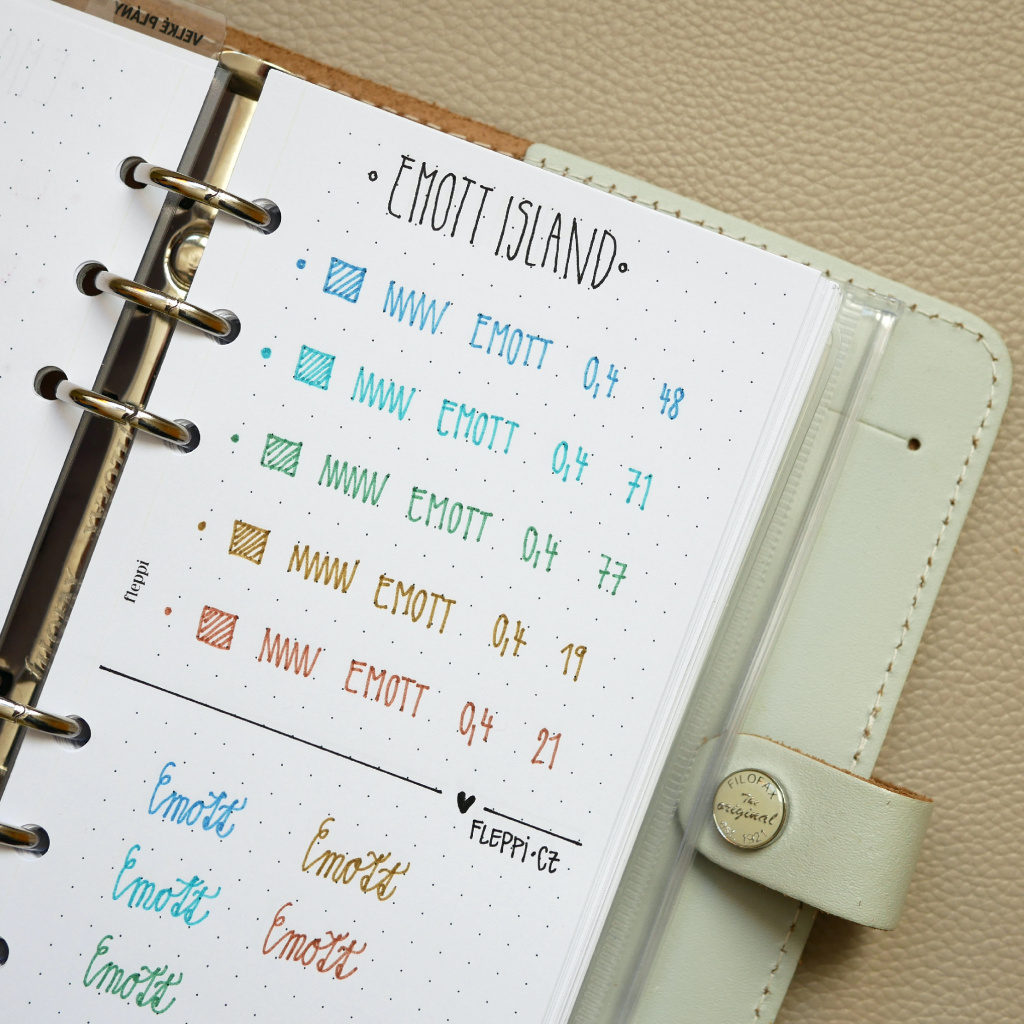 VELKÉ PLÁNY
EMOTT ISLAND
EMOTT 0,4 48
EMOTT 0,4 71
EMOTT 0,4 77
EMOTT 0,4 19
EMOTT 0,4 21
fleppi
FLEPPI·CZ
Emott
Emott
Emott
Emott
Emott
FILOFAX
The
original
EST. 1921